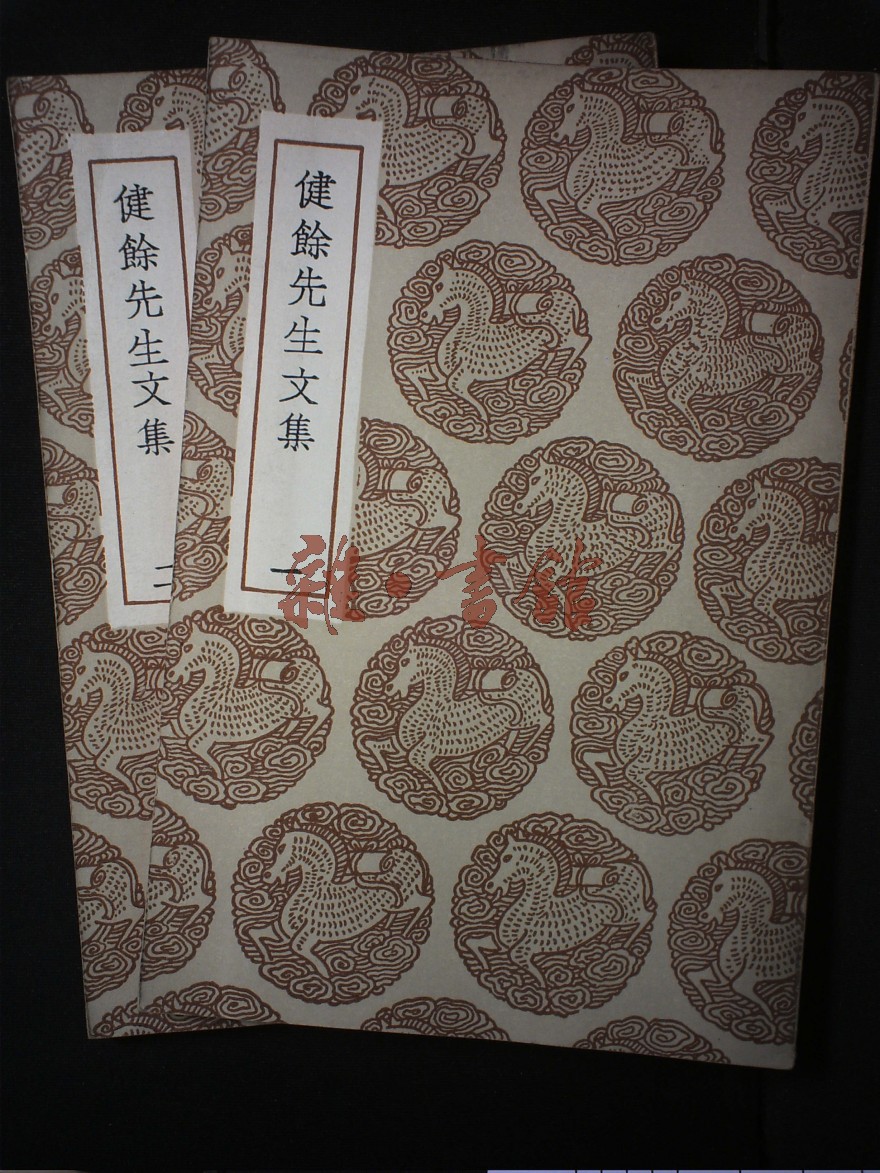 健餘先生文集
二
健餘先生文集
一
雜·書館